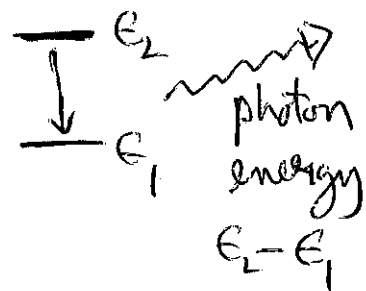 ϵ₂
ϵ₁
photon
energy
ϵ₂ - ϵ₁